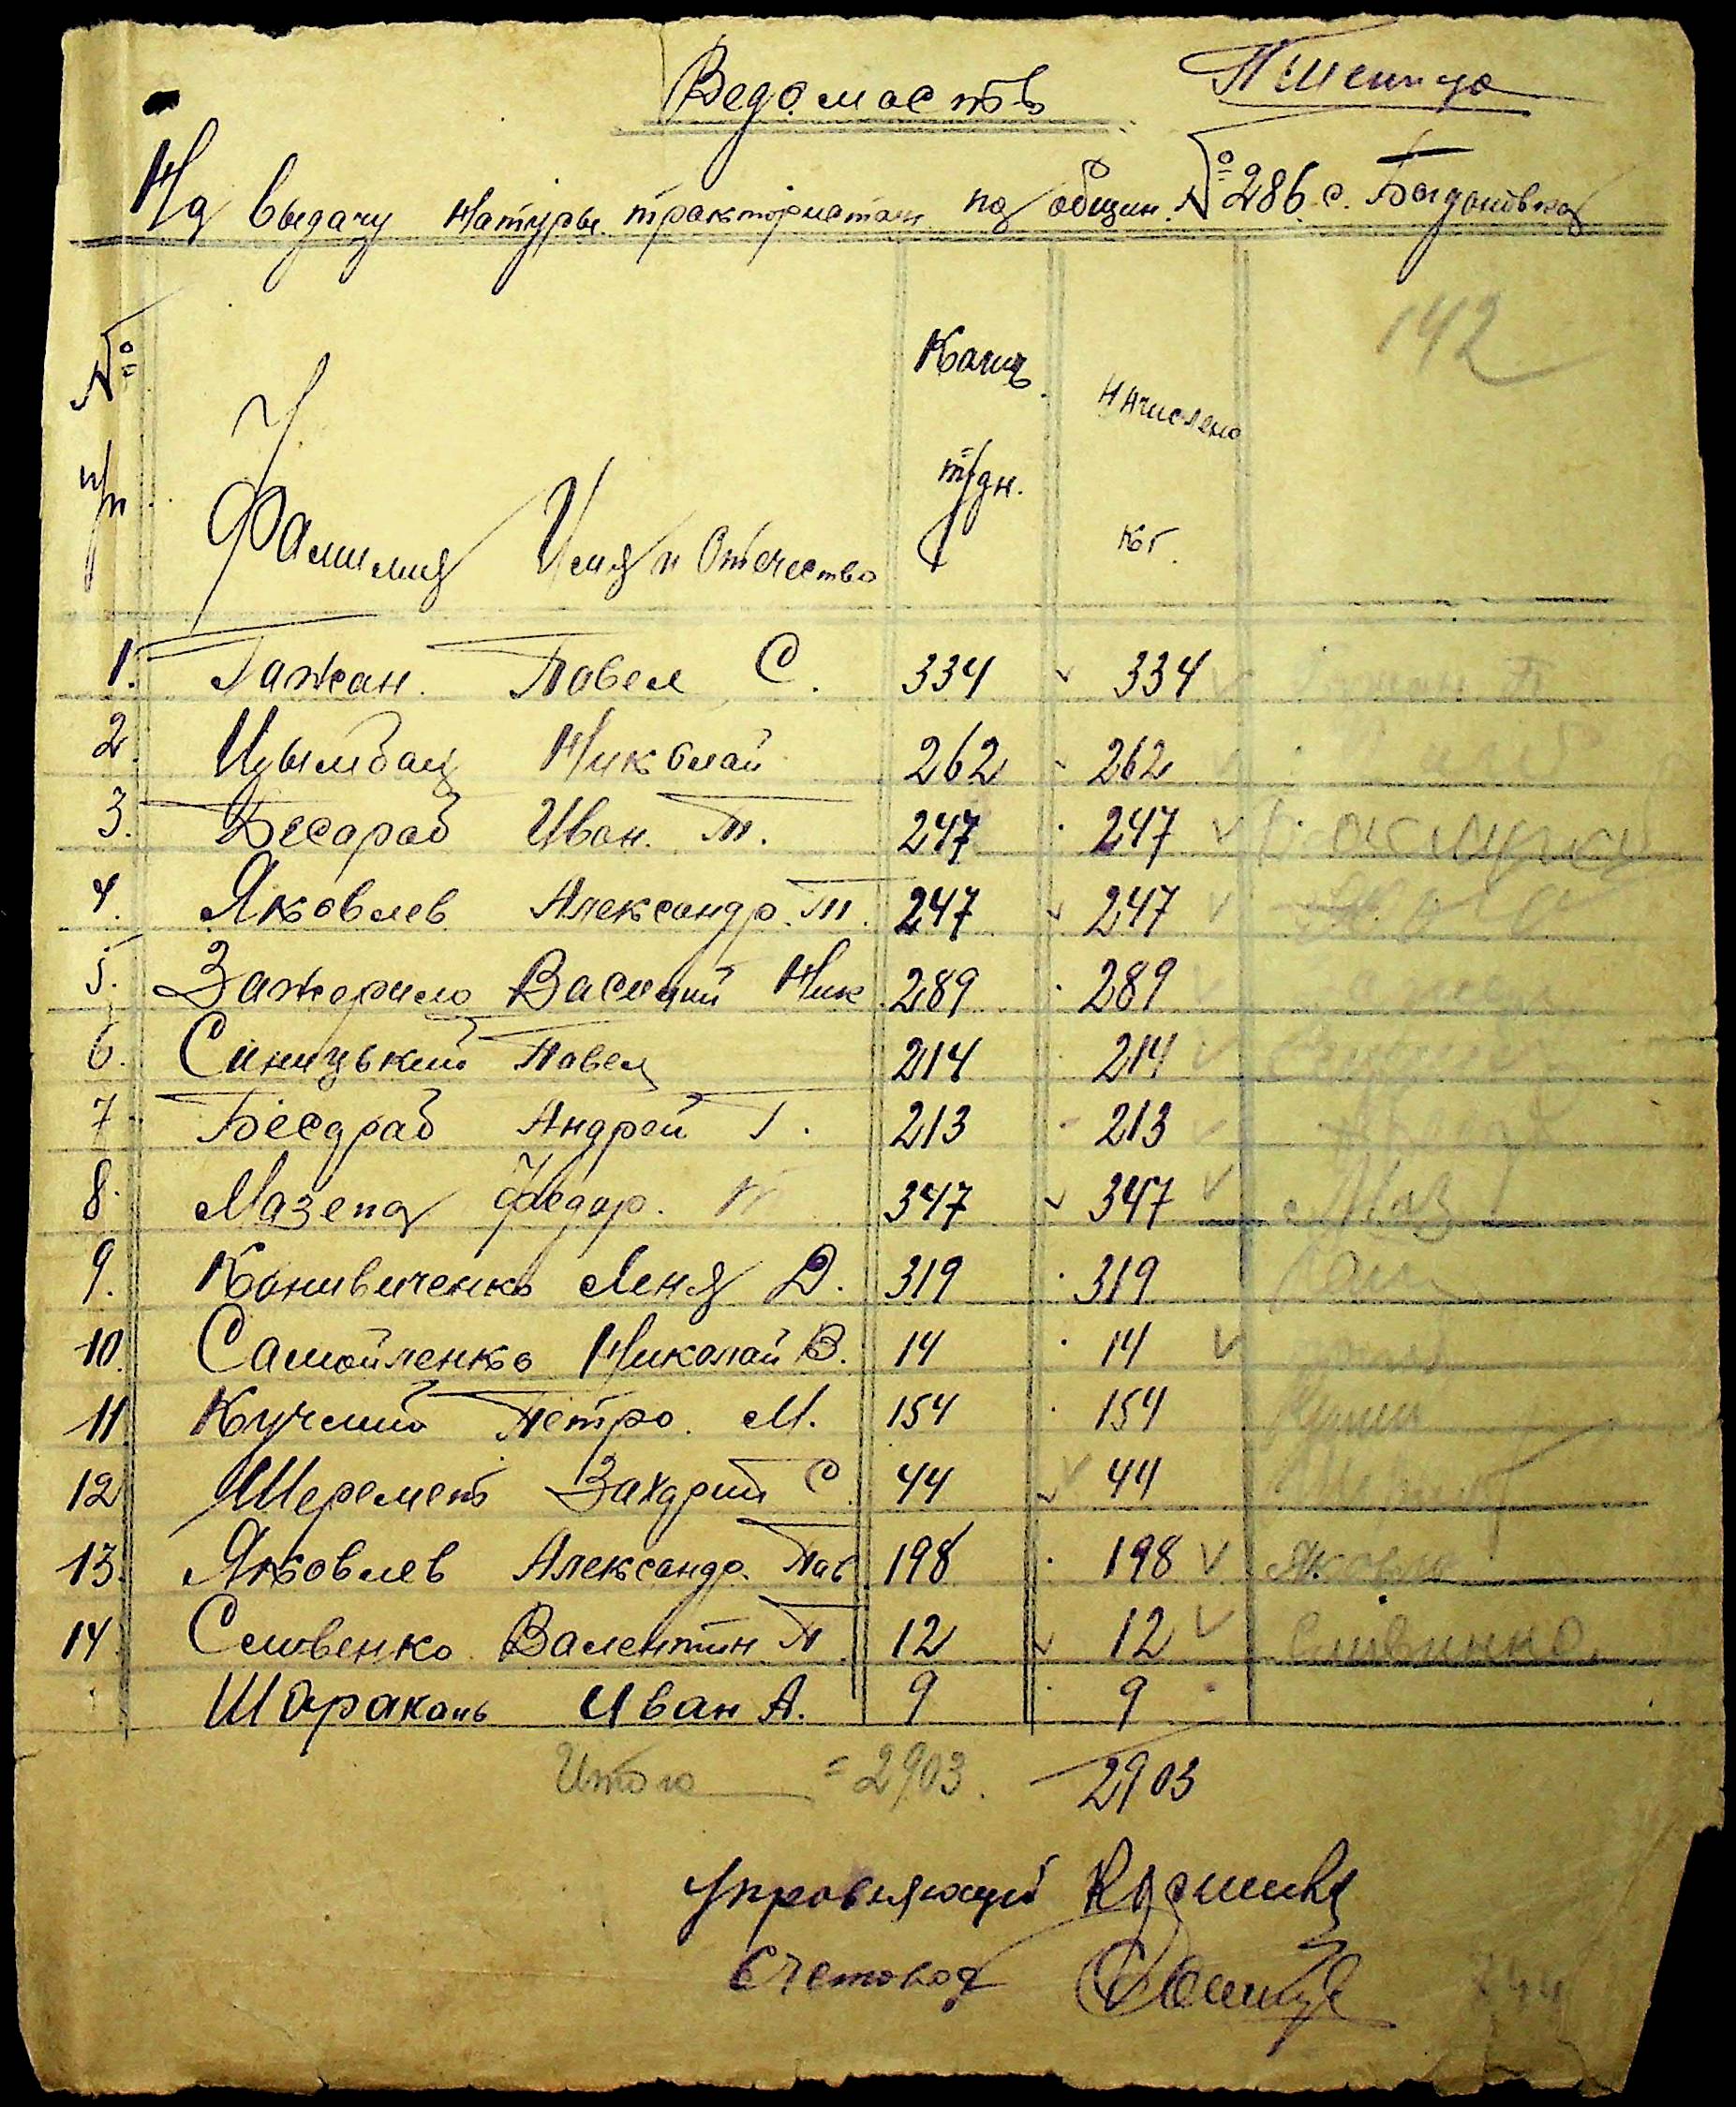 Ведомость Пшеница
На выдачу натуры трактористам по общин. № 286 с. Богдановка
142
№ п/п Фамилия Имя и Отчество Колич. т/дн. Начислено кг.
1. Гажан. Павел С. 334 334
2. Цымбал Николай 262 262
3. Бесараб Иван. Т. 247 247
4. Яковлев Александр. Т. 247 247
5. Зажерило Василий Ник 289 289
6. Синицький Павел 214 214
7. Бесараб Андрей Г. 213 213
8. Мазепа Федор. 347 347 Маз
9. Канивиченко Леня Д. 319 319
10. Самойленко Николай В. 14 14
11 Кучмий Петро. М. 154 154
12 Шеремет Захарий С 44 44
13. Яковлев Александр. Пав 198 198 Яковлев
14. Сливенко Валентин П 12 12 Сливинко.
Шаракань Иван А. 9 9
Итого = 2903. 2903
Управляющий
Счетовод